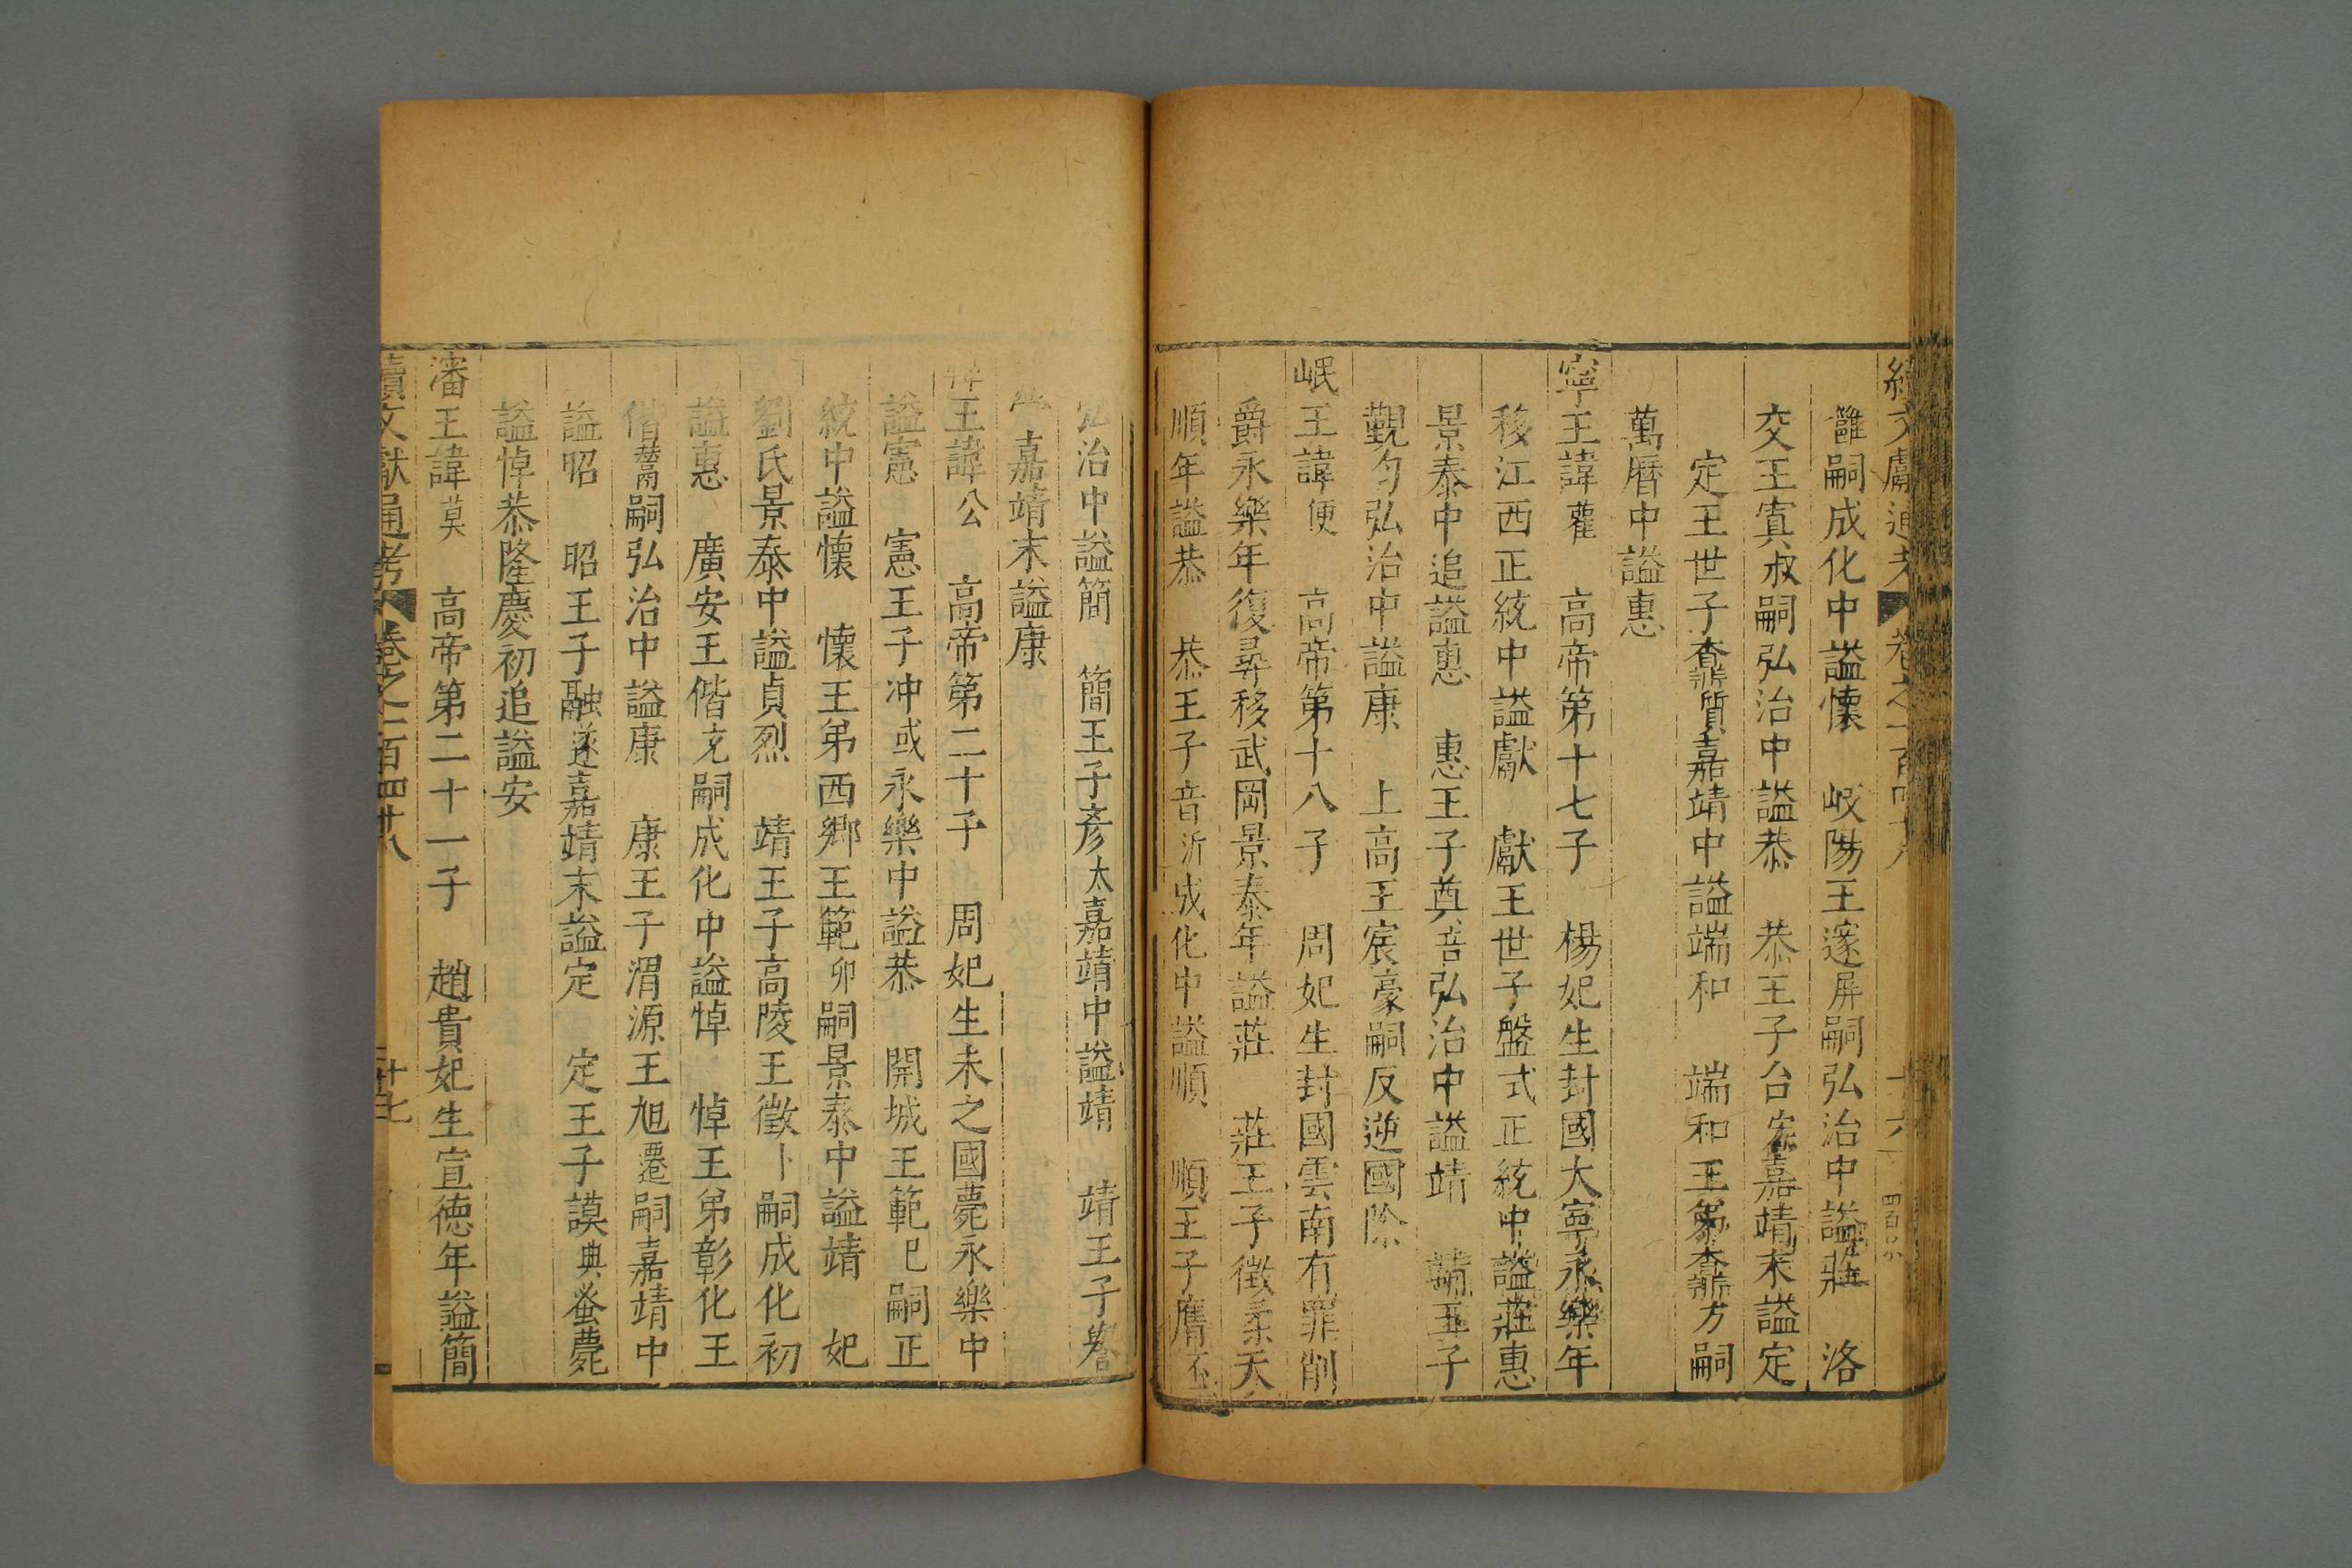 續文獻通考 卷之一百四十八 十六
嗣成化中謚懷 岐陽王邃屏嗣弘治中謚莊 洛
交王寘叔嗣弘治中謚恭 恭王子台宏嘉靖末謚定
定王世子鼒質嘉靖中謚端和 端和王弟鼒方嗣
萬曆中謚惠
寧王諱權 高帝第十七子 楊妃生封國大寧永樂年
移江西正統中謚獻 獻王世子盤式正統中謚莊惠
景泰中追謚惠 惠王子奠培弘治中謚靖 靖王子
覲勻弘治中謚康 上高王宸豪嗣反逆國除
岷王諱便 高帝第十八子 周妃生封國雲南有罪削
爵永樂年復尋移武岡景泰年謚莊 莊王子徵柔天
順年謚恭 恭王子音沂成化中謚順 順王子膺丕
弘治中謚簡 簡王子彥太嘉靖中謚靖 靖王子譽
榮嘉靖末謚康
王諱公 高帝第二十子 周妃生未之國薨永樂中
謚憲 憲王子冲或永樂中謚恭 開城王範巳嗣正
統中謚懷 懷王弟西鄉王範卯嗣景泰中謚靖 妃
劉氏景泰中謚貞烈 靖王子高陵王徵卜嗣成化初
謚惠 廣安王偕宂嗣成化中謚悼 悼王弟彰化王
偕灊嗣弘治中謚康 康王子渭源王旭遷嗣嘉靖中
謚昭 昭王子融遂嘉靖末謚定 定王子謨典蚤薨
謚悼恭隆慶初追謚安
瀋王諱莫 高帝第二十一子 趙貴妃生宣德年謚簡
續文獻通考 卷之一百四十八 十七